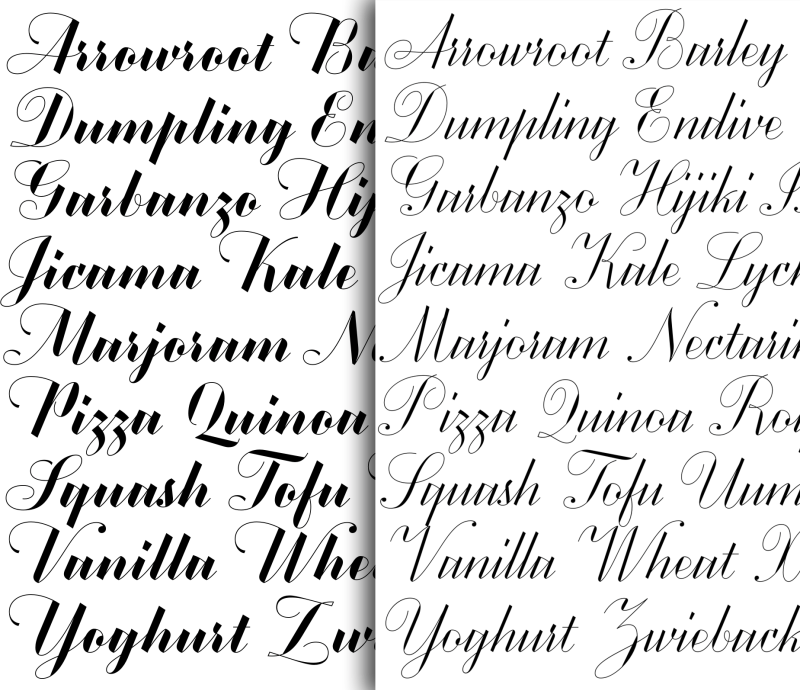 Arrowroot
Dumpling En
Garbanzo Hij
Jicama Kale
Marjoram N
Pizza Quinoa
Squash Tofu
Vanilla Whe
Yoghurt Zw
Arrowroot Barley
Dumpling Endive
Garbanzo Hijiki
Jicama Kale Lych
Marjoram Nectarin
Pizza Quinoa Ro
Squash Tofu Uum
Vanilla Wheat X
Yoghurt Zwieback